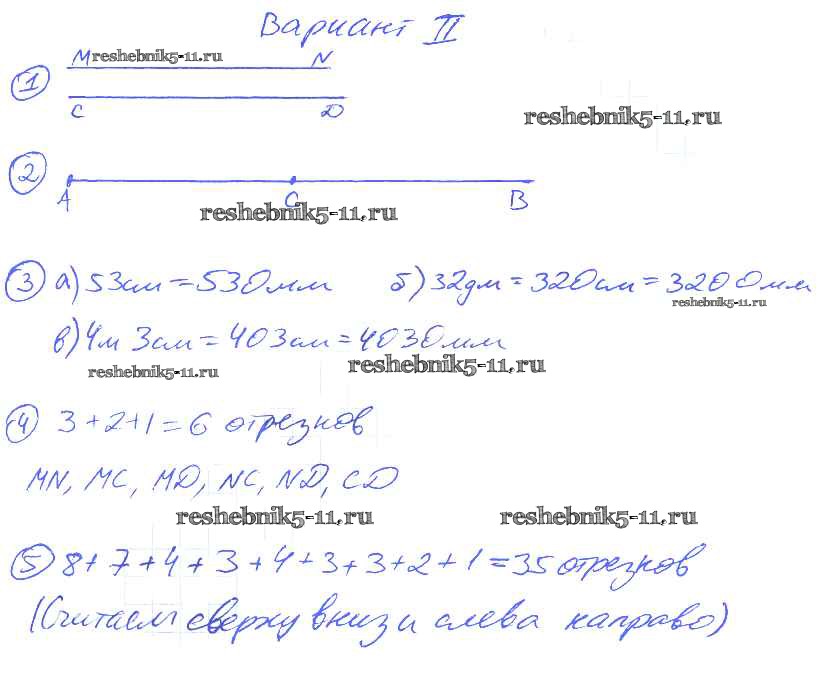 Вариант II
M reshebnik5-11.ru N
1
C D
reshebnik5-11.ru
2
A C B
reshebnik5-11.ru
3 а) 53см = 530мм б) 32дм = 320см = 3200мм
reshebnik5-11.ru
в) 4м 3см = 403см = 4030мм
reshebnik5-11.ru reshebnik5-11.ru
4 3+2+1=6 отрезков
MN, MC, MD, NC, ND, CD
reshebnik5-11.ru reshebnik5-11.ru
5 8+7+4+3+4+3+3+2+1=35 отрезков
(Считаем сверху вниз и слева направо)